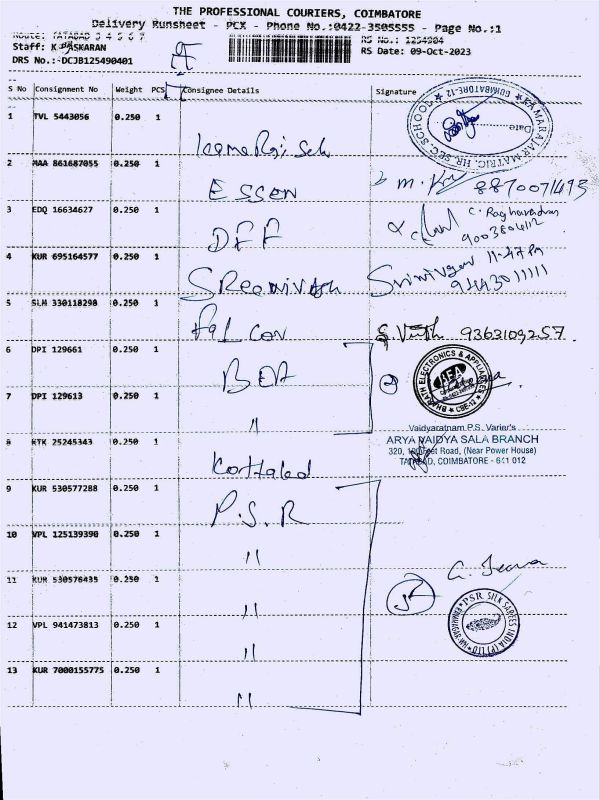 THE PROFESSIONAL COURIERS, COIMBATORE
Delivery Runsheet - PCX - Phone No.:0422-3505555 - Page No.:1
Route: TATABAD 3 4 5 6 7
RS No.: 1254904
Staff: K BASKARAN
RS Date: 09-Oct-2023
DRS No.:-DCJB125490401
S No Consignment No Weight PCS Consignee Details Signature
1 TVL 5443056 0.250 1
KAMARAJAR MATRIC. HR. SEC. SCHOOL COIMBATORE-12
Date
2 MAA 861687055 0.250 1 ESSEN 8870071495
3 EDQ 16634627 0.250 1 DFF C. Raghavendran
4 KUR 695164577 0.250 1 Sreenivash Srinivasan
9443011111
5 SLM 330118298 0.250 1 Falcon 9363109257
6 DPI 129661 0.250 1 BEA 2
BHARATH ELECTRONICS & APPLIANCES BEA CBE-12
7 DPI 129613 0.250 1 "
Vaidyaratnam P.S. Varier's
ARYA VAIDYA SALA BRANCH
320, 100 Feet Road, (Near Power House)
TATABAD, COIMBATORE - 641 012
8 KTK 25245343 0.250 1 Kottakal
9 KUR 530577288 0.250 1 P.S.R
10 VPL 125139390 0.250 1 "
11 KUR 530576435 0.250 1 "
5
PSR SILK SAREES INDIA (P) LTD
12 VPL 941473813 0.250 1 "
13 KUR 7000155775 0.250 1 "